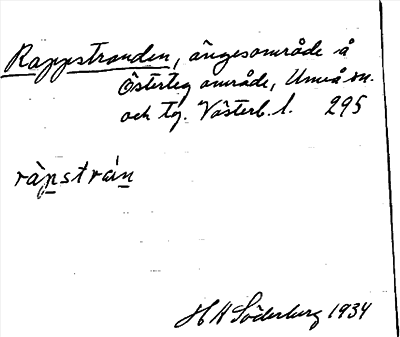 Rappstranden, ängesområde å
Österteg område, Umeå sn.
och tg. Västerb. l. 295
ràpstrán
H H Söderburg 1934